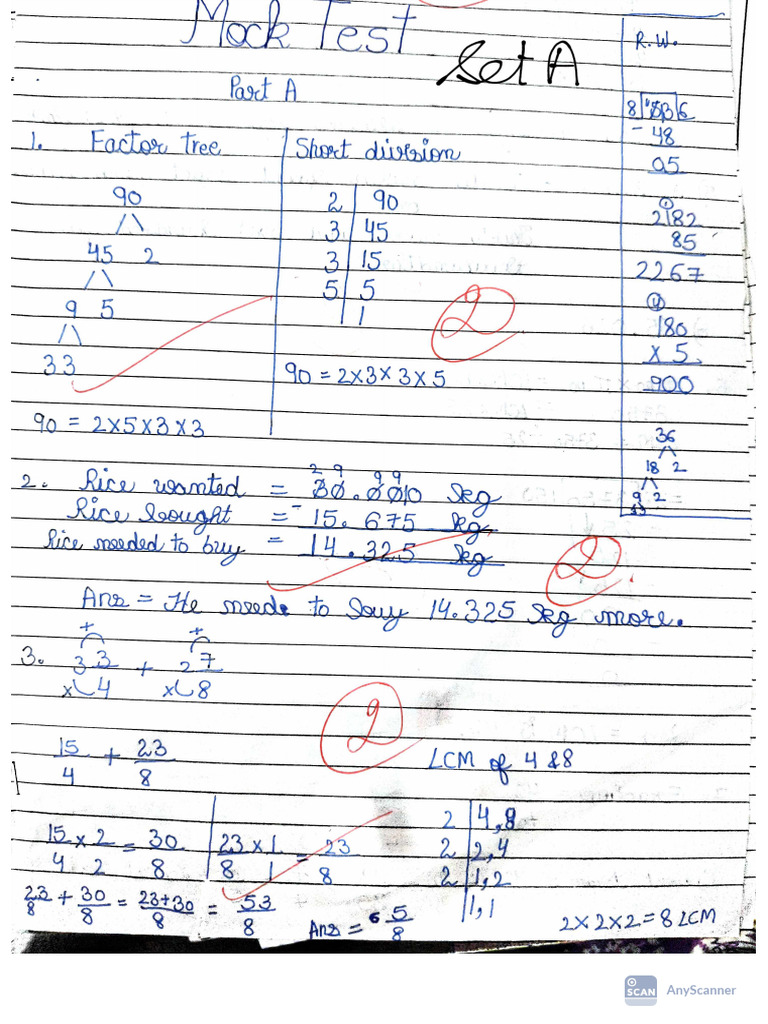 Mock Test
Set A
Part A
1. Factor tree
90
45 2
9 5
3 3
90 = 2×5×3×3
Short division
2 | 90
3 | 45
3 | 15
5 | 5
1
90 = 2×3×3×5
2
2. Rice wanted = 30.000 kg
Rice bought = - 15.675 kg
Rice needed to buy = 14.325 kg
2
Ans = He needs to buy 14.325 kg more.
3. 3 3/4 + 2 7/8
2
15/4 + 23/8
LCM of 4 & 8
2 | 4, 8
2 | 2, 4
2 | 1, 2
1, 1
2×2×2 = 8 LCM
15/4 × 2/2 = 30/8 | 23/8 × 1/1 = 23/8
23/8 + 30/8 = 23+30/8 = 53/8
Ans = 6 5/8
R.W.
- 48
05
2182
85
2267
180
× 5
900
36
18 2
9 2
SCAN AnyScanner